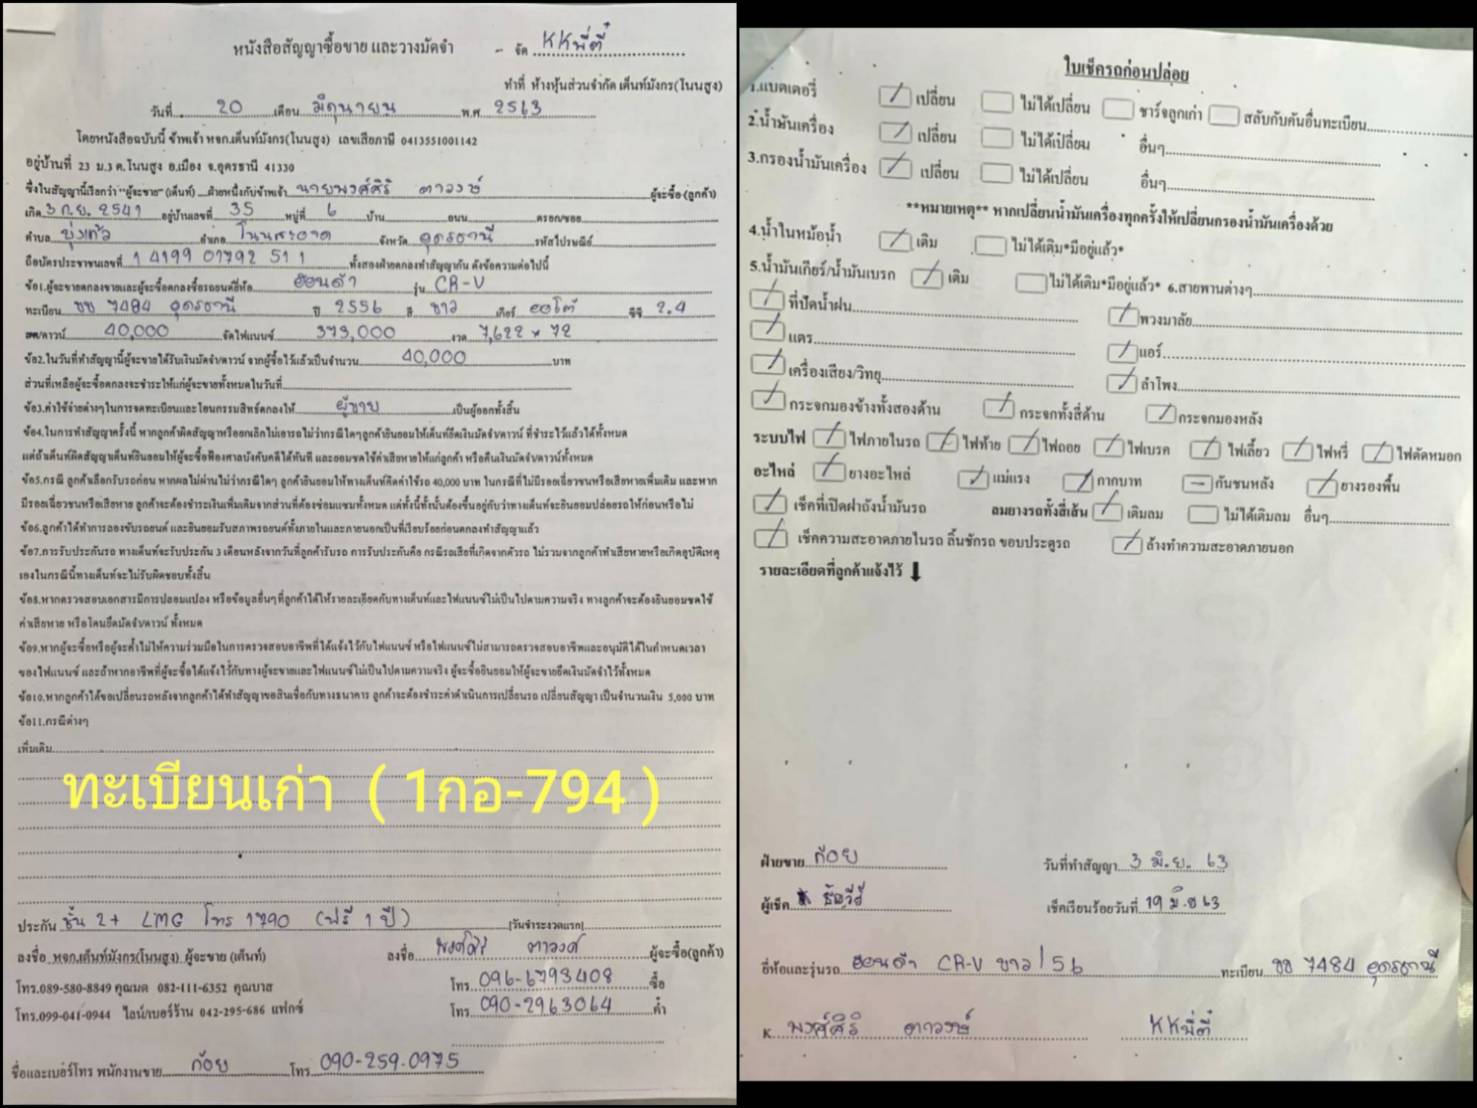 หนังสือสัญญาซื้อขาย และวางมัดจำ - จัด KKพี่ตี๋
ทำที่ ห้างหุ้นส่วนจำกัด เต็นท์มังกร(โนนสูง)
วันที่ 20 เดือน มิถุนายน พ.ศ 2563
โดยหนังสือฉบับนี้ ข้าพเจ้า หจก.เต็นท์มังกร(โนนสูง) เลขเสียภาษี 0413551001142
อยู่บ้านที่ 23 ม.3 ต.โนนสูง อ.เมือง จ.อุดรธานี 41330
ซึ่งในสัญญานี้เรียกว่า "ผู้จะขาย" (เต็นท์) ฝ่ายหนึ่งกับข้าพเจ้า นายพงศ์ศิริ ตาวงษ์ ผู้จะซื้อ (ลูกค้า)
เกิด 3 ก.ย. 2541 อยู่บ้านเลขที่ 35 หมู่ที่ 6 บ้าน ถนน ตรอก/ซอย
ตำบล บุ่งแก้ว อำเภอ โนนสะอาด จังหวัด อุดรธานี รหัสไปรษณีย์
ถือบัตรประชาชนเลขที่ 1 4199 01792 51 1 ทั้งสองฝ่ายตกลงทำสัญญากัน ดังข้อความต่อไปนี้
ข้อ1.ผู้จะขายตกลงขายและผู้จะซื้อตกลงซื้อรถยนต์ยี่ห้อ ฮอนด้า รุ่น CR-V
ทะเบียน ขข 7484 อุดรธานี ปี 2556 สี ขาว เกียร์ ออโต้ ซีซี 2.4
สด/ดาวน์ 40,000 จัดไฟแนนซ์ 373,000 งวด 7,622 × 72
ข้อ2.ในวันที่ทำสัญญานี้ผู้จะขายได้รับเงินมัดจำ/ดาวน์ จากผู้ซื้อไว้แล้วเป็นจำนวน 40,000 บาท
ส่วนที่เหลือผู้จะซื้อตกลงจะชำระให้แก่ผู้จะขายทั้งหมดในวันที่
ข้อ3.ค่าใช้จ่ายต่างๆในการจดทะเบียนและโอนกรรมสิทธิ์ตกลงให้ ผู้ขาย เป็นผู้ออกทั้งสิ้น
ข้อ4.ในการทำสัญญาครั้งนี้ หากลูกค้าผิดสัญญาหรือยกเลิกไม่เอารถไม่ว่ากรณีใดๆลูกค้ายินยอมให้เต็นท์ยึดเงินมัดจำ/ดาวน์ ที่ชำระไว้แล้วได้ทั้งหมด
แต่ถ้าเต็นท์ผิดสัญญาเต็นท์ยินยอมให้ผู้จะซื้อฟ้องศาลบังคับคดีได้ทันที และยอมชดใช้ค่าเสียหายให้แก่ลูกค้า หรือคืนเงินมัดจำ/ดาวน์ทั้งหมด
ข้อ5.กรณี ลูกค้าเลือกรับรถก่อน หากผลไม่ผ่านไม่ว่ากรณีใดๆ ลูกค้ายินยอมให้ทางเต็นท์คิดค่าใช้รถ 40,000 บาท ในกรณีที่ไม่มีรอยเฉี่ยวชนหรือเสียหายเพิ่มเติม และหาก
มีรอยเฉี่ยวชนหรือเสียหาย ลูกค้าจะต้องชำระเงินเพิ่มเติมจากส่วนที่ต้องซ่อมแซมทั้งหมด แต่ทั้งนี้ทั้งนั้นต้องขึ้นอยู่กับว่าทางเต็นท์จะยินยอมปล่อยรถให้ก่อนหรือไม่
ข้อ6.ลูกค้าได้ทำการลองขับรถยนต์ และยินยอมรับสภาพรถยนต์ทั้งภายในและภายนอกเป็นที่เรียบร้อยก่อนตกลงทำสัญญาแล้ว
ข้อ7.การรับประกันรถ ทางเต็นท์จะรับประกัน 3 เดือนหลังจากวันที่ลูกค้ารับรถ การรับประกันคือ กรณีรถเสียที่เกิดจากตัวรถ ไม่รวมจากลูกค้าทำเสียหายหรือเกิดอุบัติเหตุ
เองในกรณีนี้ทางเต็นท์จะไม่รับผิดชอบทั้งสิ้น
ข้อ8.หากตรวจสอบเอกสารมีการปลอมแปลง หรือข้อมูลอื่นๆที่ลูกค้าได้ให้รายละเอียดกับทางเต็นท์และไฟแนนซ์ไม่เป็นไปตามความจริง ทางลูกค้าจะต้องยินยอมชดใช้
ค่าเสียหาย หรือโดนยึดมัดจำ/ดาวน์ ทั้งหมด
ข้อ9.หากผู้จะซื้อหรือผู้จะค้ำไม่ให้ความร่วมมือในการตรวจสอบอาชีพที่ได้แจ้งไว้กับไฟแนนซ์ หรือไฟแนนซ์ไม่สามารถตรวจสอบอาชีพและอนุมัติได้ในกำหนดเวลา
ของไฟแนนซ์ และถ้าหากอาชีพที่ผู้จะซื้อได้แจ้งไว้กับทางผู้จะขายและไฟแนนซ์ไม่เป็นไปตามความจริง ผู้จะซื้อยินยอมให้ผู้จะขายยึดเงินมัดจำไว้ทั้งหมด
ข้อ10.หากลูกค้าได้ขอเปลี่ยนรถหลังจากลูกค้าได้ทำสัญญาขอสินเชื่อกับทางธนาคาร ลูกค้าจะต้องชำระค่าดำเนินการเปลี่ยนรถ เปลี่ยนสัญญา เป็นจำนวนเงิน 5,000 บาท
ข้อ11.กรณีต่างๆ
เพิ่มเติม
ทะเบียนเก่า ( 1กอ-794 )
ประกัน ชั้น 2+ LMG โทร 1790 (ฟรี 1 ปี) (วันชำระงวดแรก)
ลงชื่อ หจก.เต็นท์มังกร(โนนสูง) ผู้จะขาย (เต็นท์) ลงชื่อ พงศ์ศิริ ตาวงศ์ ผู้จะซื้อ(ลูกค้า)
โทร.089-580-8849 คุณมด 082-111-6352 คุณบาส โทร 096-6793408 ซื้อ
โทร.099-041-0944 ไลน์/เบอร์ร้าน 042-295-686 แฟกซ์ โทร 090-2963064 ค้ำ
ชื่อและเบอร์โทร พนักงานขาย ก้อย โทร 090-259-0975
ใบเช็ครถก่อนปล่อย
1.แบตเตอรี่ / เปลี่ยน ไม่ได้เปลี่ยน ชาร์จลูกเก่า สลับกับคันอื่นทะเบียน
2.น้ำมันเครื่อง / เปลี่ยน ไม่ได้เปลี่ยน อื่นๆ
3.กรองน้ำมันเครื่อง / เปลี่ยน ไม่ได้เปลี่ยน อื่นๆ
**หมายเหตุ** หากเปลี่ยนน้ำมันเครื่องทุกครั้งให้เปลี่ยนกรองน้ำมันเครื่องด้วย
4.น้ำในหม้อน้ำ / เติม ไม่ได้เติม*มีอยู่แล้ว*
5.น้ำมันเกียร์/น้ำมันเบรก / เติม ไม่ได้เติม*มีอยู่แล้ว* 6.สายพานต่างๆ
/ ที่ปัดน้ำฝน / พวงมาลัย
/ แตร / แอร์
/ เครื่องเสียง/วิทยุ / ลำโพง
/ กระจกมองข้างทั้งสองด้าน / กระจกทั้งสี่ด้าน / กระจกมองหลัง
ระบบไฟ / ไฟภายในรถ / ไฟท้าย / ไฟถอย / ไฟเบรค / ไฟเลี้ยว / ไฟหรี่ / ไฟตัดหมอก
อะไหล่ / ยางอะไหล่ / แม่แรง / กากบาท - กันชนหลัง / ยางรองพื้น
/ เช็คที่เปิดฝาถังน้ำมันรถ ลมยางรถทั้งสี่เส้น / เติมลม ไม่ได้เติมลม อื่นๆ
/ เช็คความสะอาดภายในรถ ลิ้นชักรถ ขอบประตูรถ / ล้างทำความสะอาดภายนอก
รายละเอียดที่ลูกค้าแจ้งไว้ ⬇
ฝ่ายขาย ก้อย วันที่ทำสัญญา 3 มิ.ย. 63
ผู้เช็ค เช็คเรียบร้อยวันที่ 19 มิ.ย 63
ยี่ห้อและรุ่นรถ ฮอนด้า CR-V ขาว/56 ทะเบียน ขข 7484 อุดรธานี
K. พงศ์ศิริ ตาวงษ์ KKพี่ตี๋